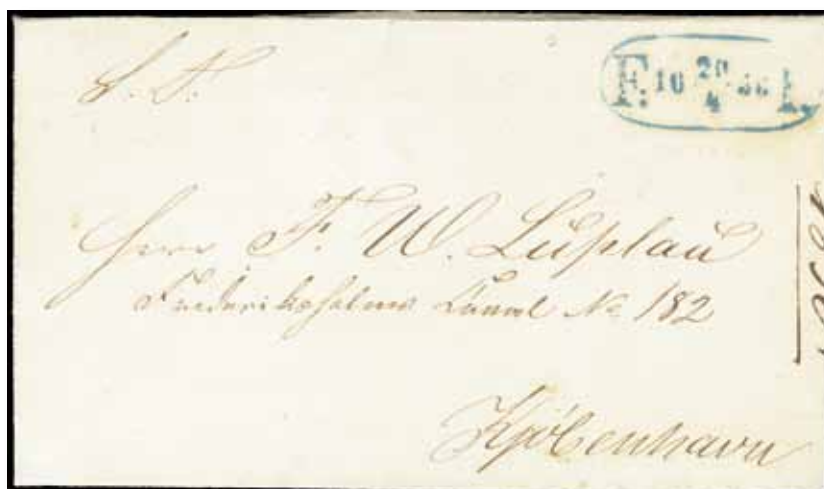 S. T.
F. 10 20/4 56 L.
Herr F. W. Lüplau
Frederiksholms Canal No 182
Kjöbenhavn